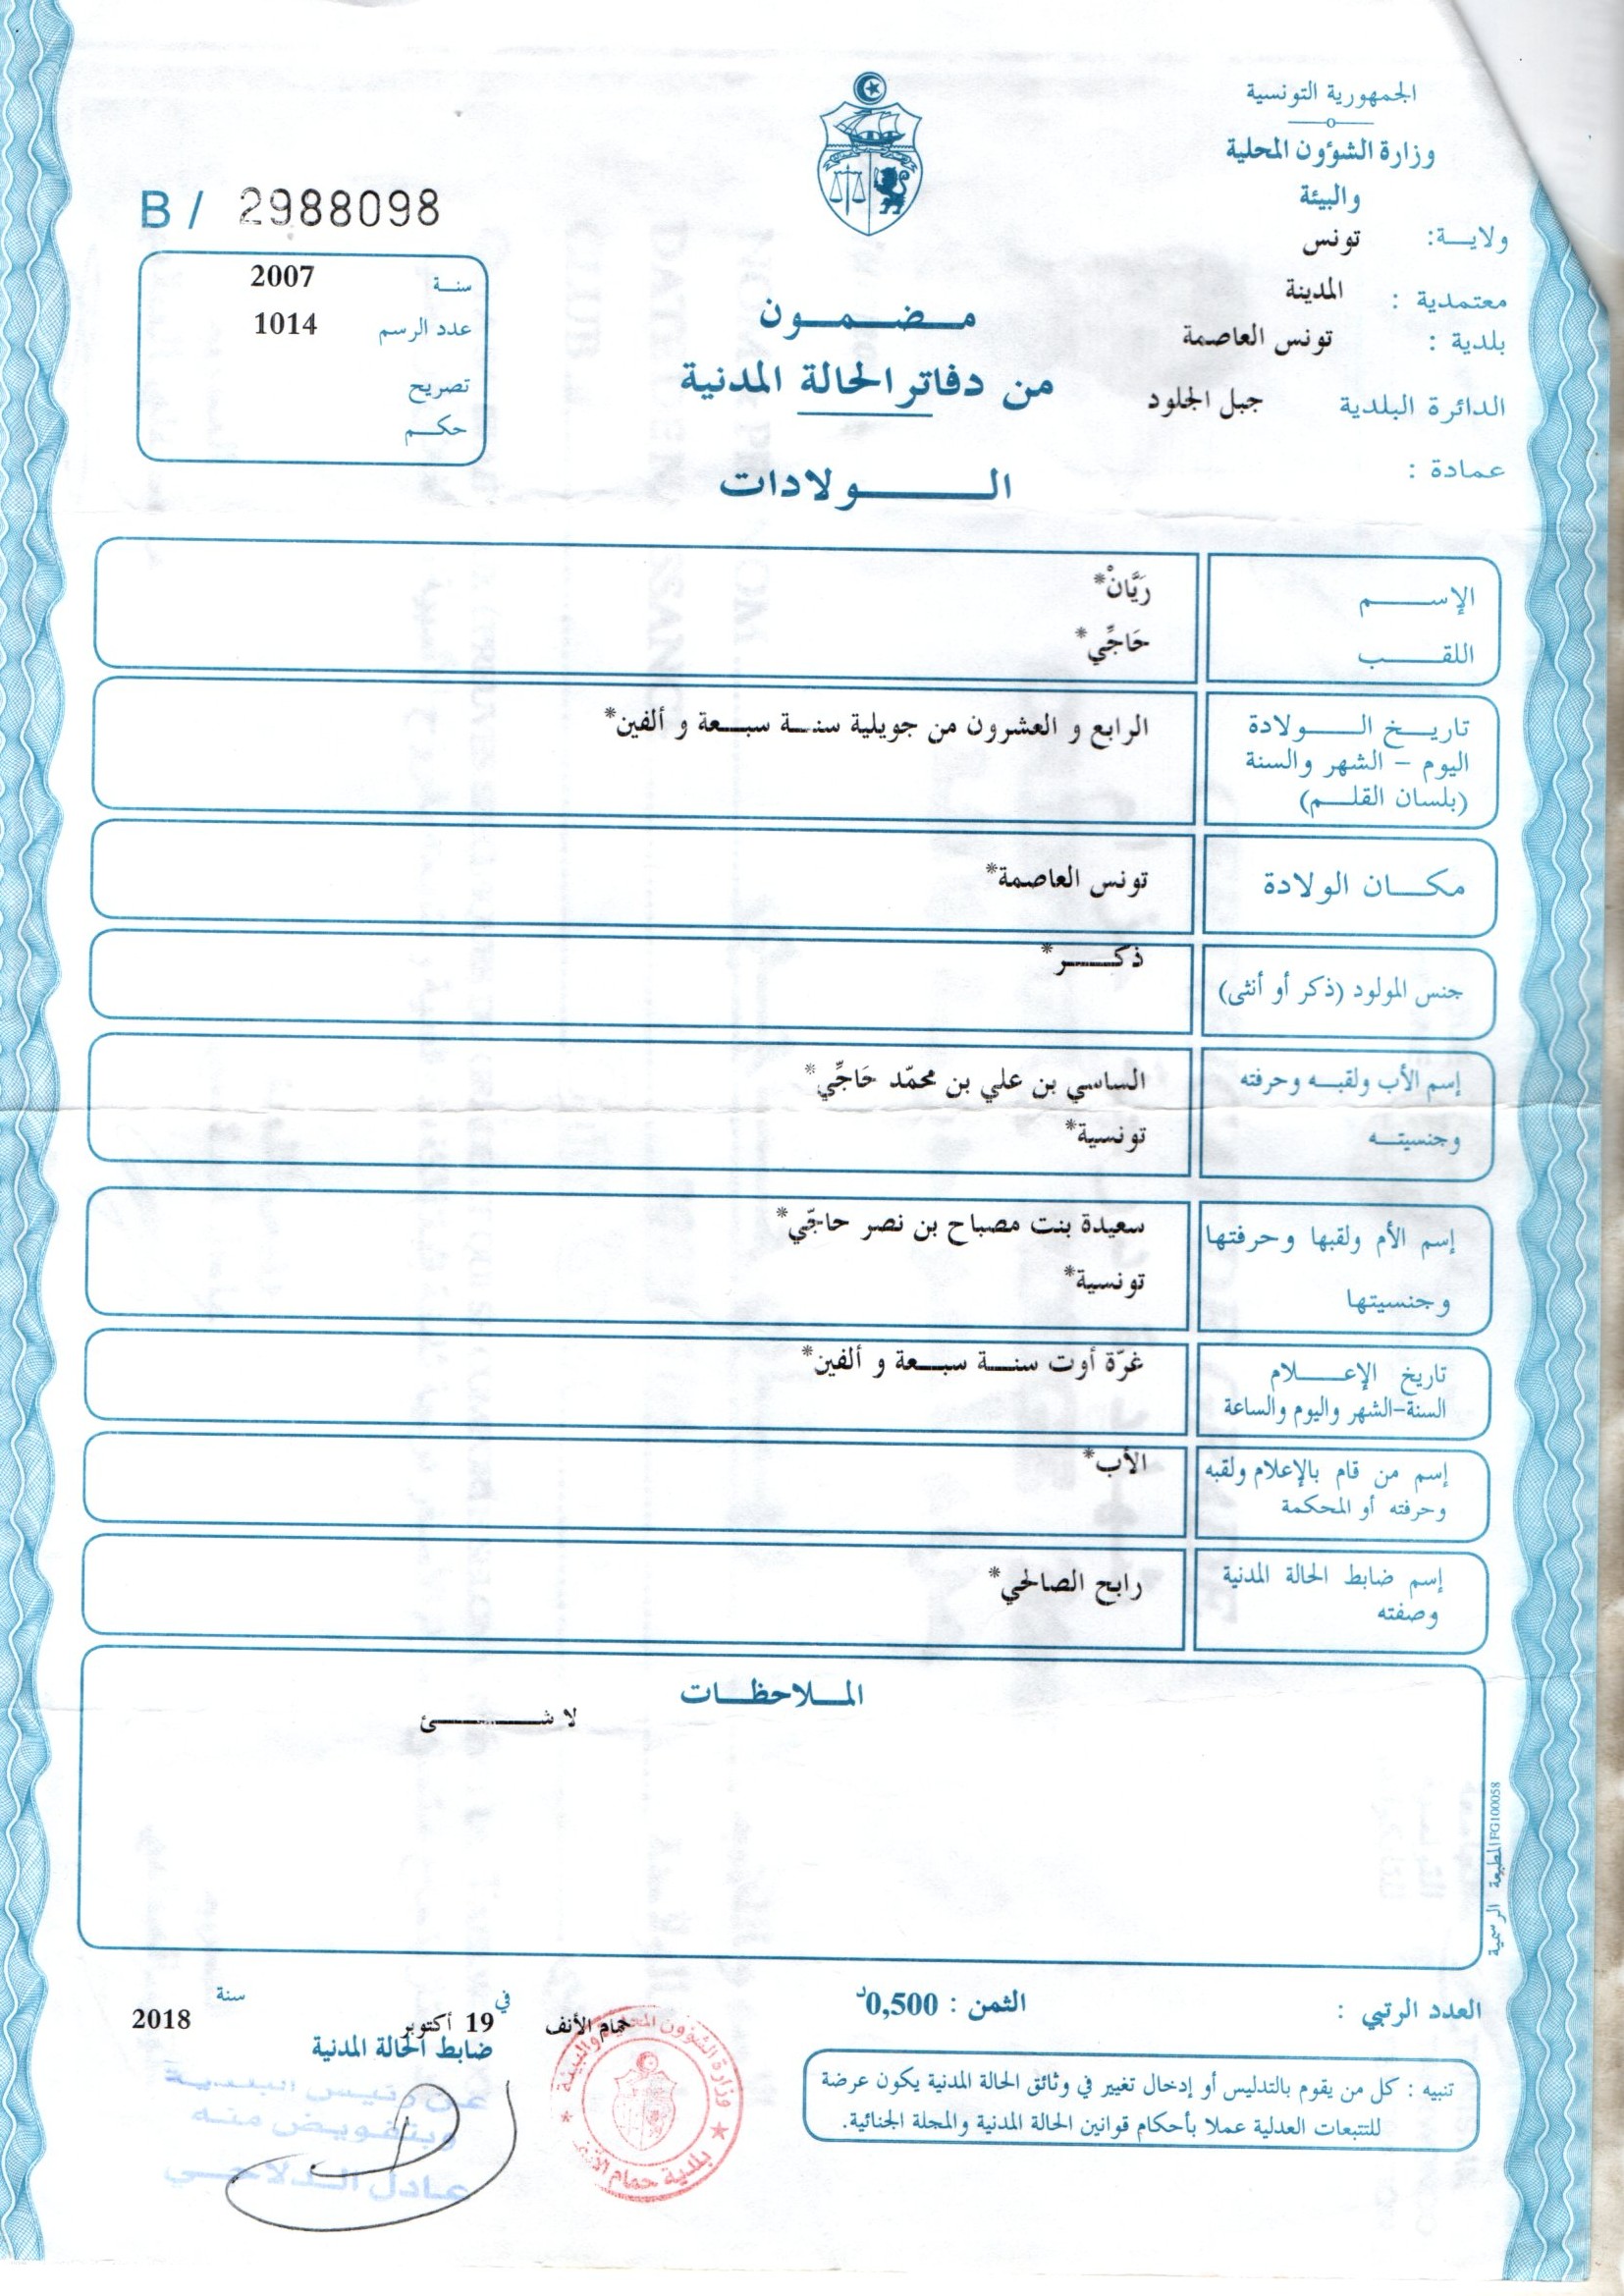 الجمهورية التونسية
وزارة الشؤون المحلية
والبيئة
ولايـــة: تونس
معتمدية : المدينة
بلدية : تونس العاصمة
الدائرة البلدية جبل الجلود
عمادة :
B / 2988098
سنــة 2007
عدد الرسم 1014
تصريح
حكــم
مــضــمــون
من دفاتر الحالة المدنية
الــولادات
الإســـم رَيَّانْ*
اللقـــب حَاجِّي*
تاريــخ الــولادة الرابع و العشرون من جويلية سنــة سبــعة و ألفين*
اليوم - الشهر والسنة
(بلسان القلــم)
مكــان الولادة تونس العاصمة*
جنس المولود (ذكر أو أنثى) ذكــر*
إسم الأب ولقبــه وحرفته الساسي بن علي بن محمّد حَاجِّي*
وجنسيتــه تونسية*
إسم الأم ولقبها وحرفتها سعيدة بنت مصباح بن نصر حاجّي*
وجنسيتها تونسية*
تاريخ الإعـــلام غرّة أوت سنــة سبــعة و ألفين*
السنة-الشهر واليوم والساعة
إسم من قام بالإعلام ولقبه الأب*
وحرفته أو المحكمة
إسم ضابط الحالة المدنية رابح الصالحي*
وصفته
المــلاحظــات
لا شـــئ
المطبعة الرسمية FG100058
العدد الرتبي :
الثمن : 0,500د
حمام الأنف في 19 أكتوبر سنة 2018
ضابط الحالة المدنية
تنبيه : كل من يقوم بالتدليس أو إدخال تغيير في وثائق الحالة المدنية يكون عرضة
للتتبعات العدلية عملا بأحكام قوانين الحالة المدنية والمجلة الجنائية.
وزارة الشؤون المحلية والبيئة
بلدية حمام الأنف
عن رئيس البلدية
وبتفويض منه
عادل